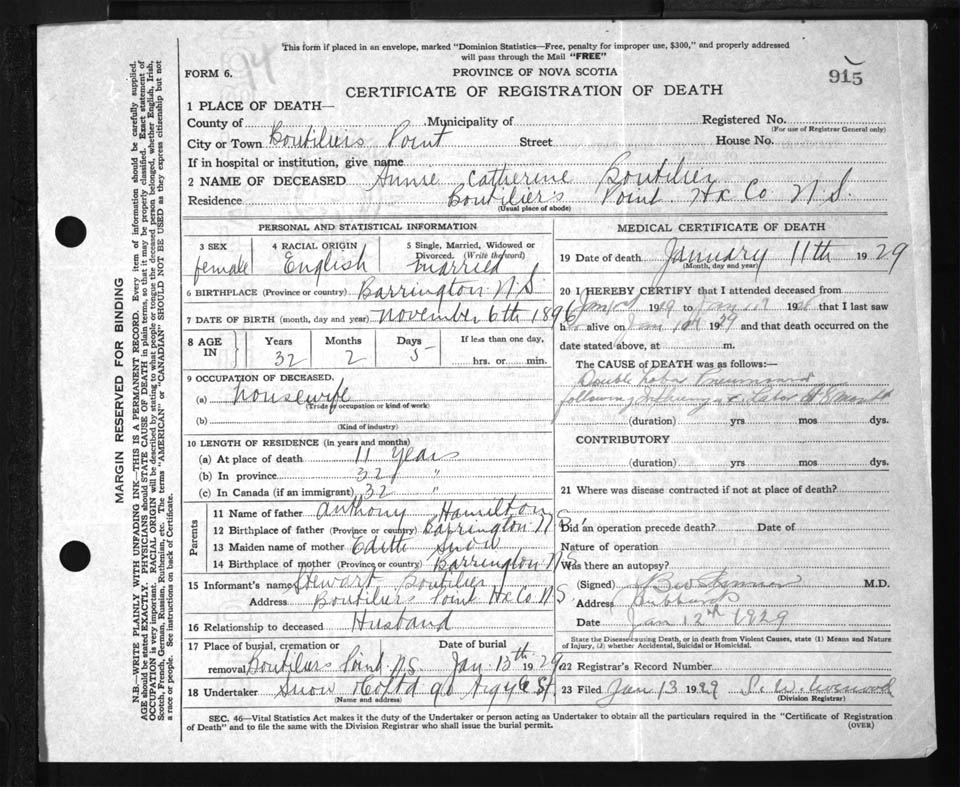 94
This form if placed in an envelope, marked "Dominion Statistics—Free, penalty for improper use, $300," and properly addressed
will pass through the Mail "FREE"
FORM 6.
PROVINCE OF NOVA SCOTIA
915
CERTIFICATE OF REGISTRATION OF DEATH
1 PLACE OF DEATH—
County of Municipality of Registered No.
(For use of Registrar General only)
City or Town Boutiliers Point Street House No.
If in hospital or institution, give name
2 NAME OF DECEASED Annie Catherine Boutilier
Residence Boutiliers Point Hx Co N.S.
(Usual place of abode)
PERSONAL AND STATISTICAL INFORMATION
3 SEX 4 RACIAL ORIGIN 5 Single, Married, Widowed or
Divorced. (Write the word)
female English married
6 BIRTHPLACE (Province or country) Barrington N.S.
7 DATE OF BIRTH (month, day and year) November 6th 1896
8 AGE
IN
Years Months Days If less than one day,
32 2 5 hrs. or min.
9 OCCUPATION OF DECEASED.
(a) housewife
(Trade, occupation or kind of work)
(b)
(Kind of industry)
10 LENGTH OF RESIDENCE (in years and months)
(a) At place of death 11 Years
(b) In province 32 "
(c) In Canada (if an immigrant) 32 "
Parents
11 Name of father Anthony Hamilton
12 Birthplace of father (Province or country) Barrington N.S.
13 Maiden name of mother Edith Snow
14 Birthplace of mother (Province or country) Barrington N.S.
15 Informant's name Stewart Boutilier
Address Boutiliers Point Hx Co. N.S
16 Relationship to deceased Husband
17 Place of burial, cremation or Date of burial
removal Boutiliers Point N.S. Jan 13th 1929
18 Undertaker Snow & Co Ltd 90 Argyle St.
(Name and address)
MEDICAL CERTIFICATE OF DEATH
19 Date of death January 11th 1929
(Month, day and year)
20 I HEREBY CERTIFY that I attended deceased from
1929 to Jan 19 that I last saw
alive on Jan 1929 and that death occurred on the
date stated above, at m.
The CAUSE OF DEATH was as follows:—
Double Lobar Pneumonia
following
(duration) yrs mos dys.
CONTRIBUTORY
(duration) yrs mos dys.
21 Where was disease contracted if not at place of death?
Did an operation precede death? Date of
Nature of operation
Was there an autopsy?
(Signed) M.D.
Address
Date Jan 12th 1929
State the Disease causing Death, or in death from Violent Causes, state (1) Means and Nature
of Injury, (2) whether Accidental, Suicidal or Homicidal.
22 Registrar's Record Number
23 Filed Jan 13 1929
(Division Registrar)
SEC. 46—Vital Statistics Act makes it the duty of the Undertaker or person acting as Undertaker to obtain all the particulars required in the "Certificate of Registration
of Death" and to file the same with the Division Registrar who shall issue the burial permit.
(OVER)
MARGIN RESERVED FOR BINDING
N.B.—WRITE PLAINLY WITH UNFADING INK—THIS IS A PERMANENT RECORD. Every item of information should be carefully supplied.
AGE should be stated EXACTLY. PHYSICIANS should STATE CAUSE OF DEATH in plain terms, so that it may be properly classified. Exact statement of
OCCUPATION is very important. RACIAL ORIGIN will be described by stating to what people or tongue the deceased person belonged, whether English, Irish,
Scotch, French, German, Russian, Ruthenian, etc. The terms "AMERICAN" or "CANADIAN" SHOULD NOT BE USED as they express citizenship but not
a race or people. See instructions on back of Certificate.